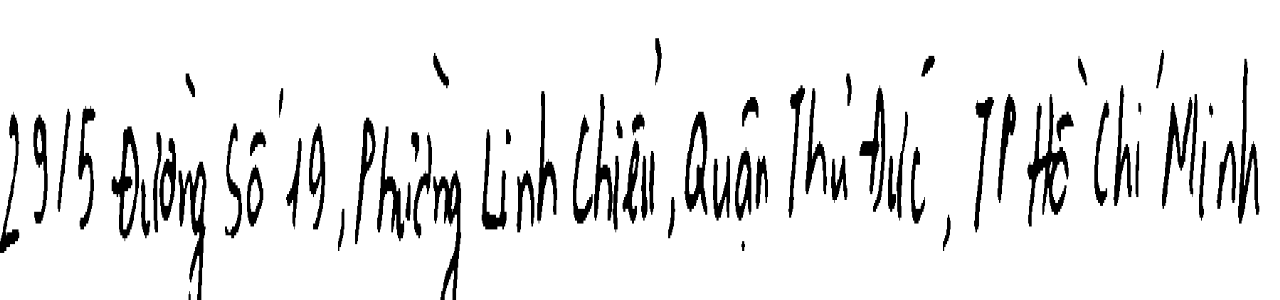 29/5 Đường Số 19, Phường Linh Chiểu, Quận Thủ Đức, TP Hồ Chí Minh